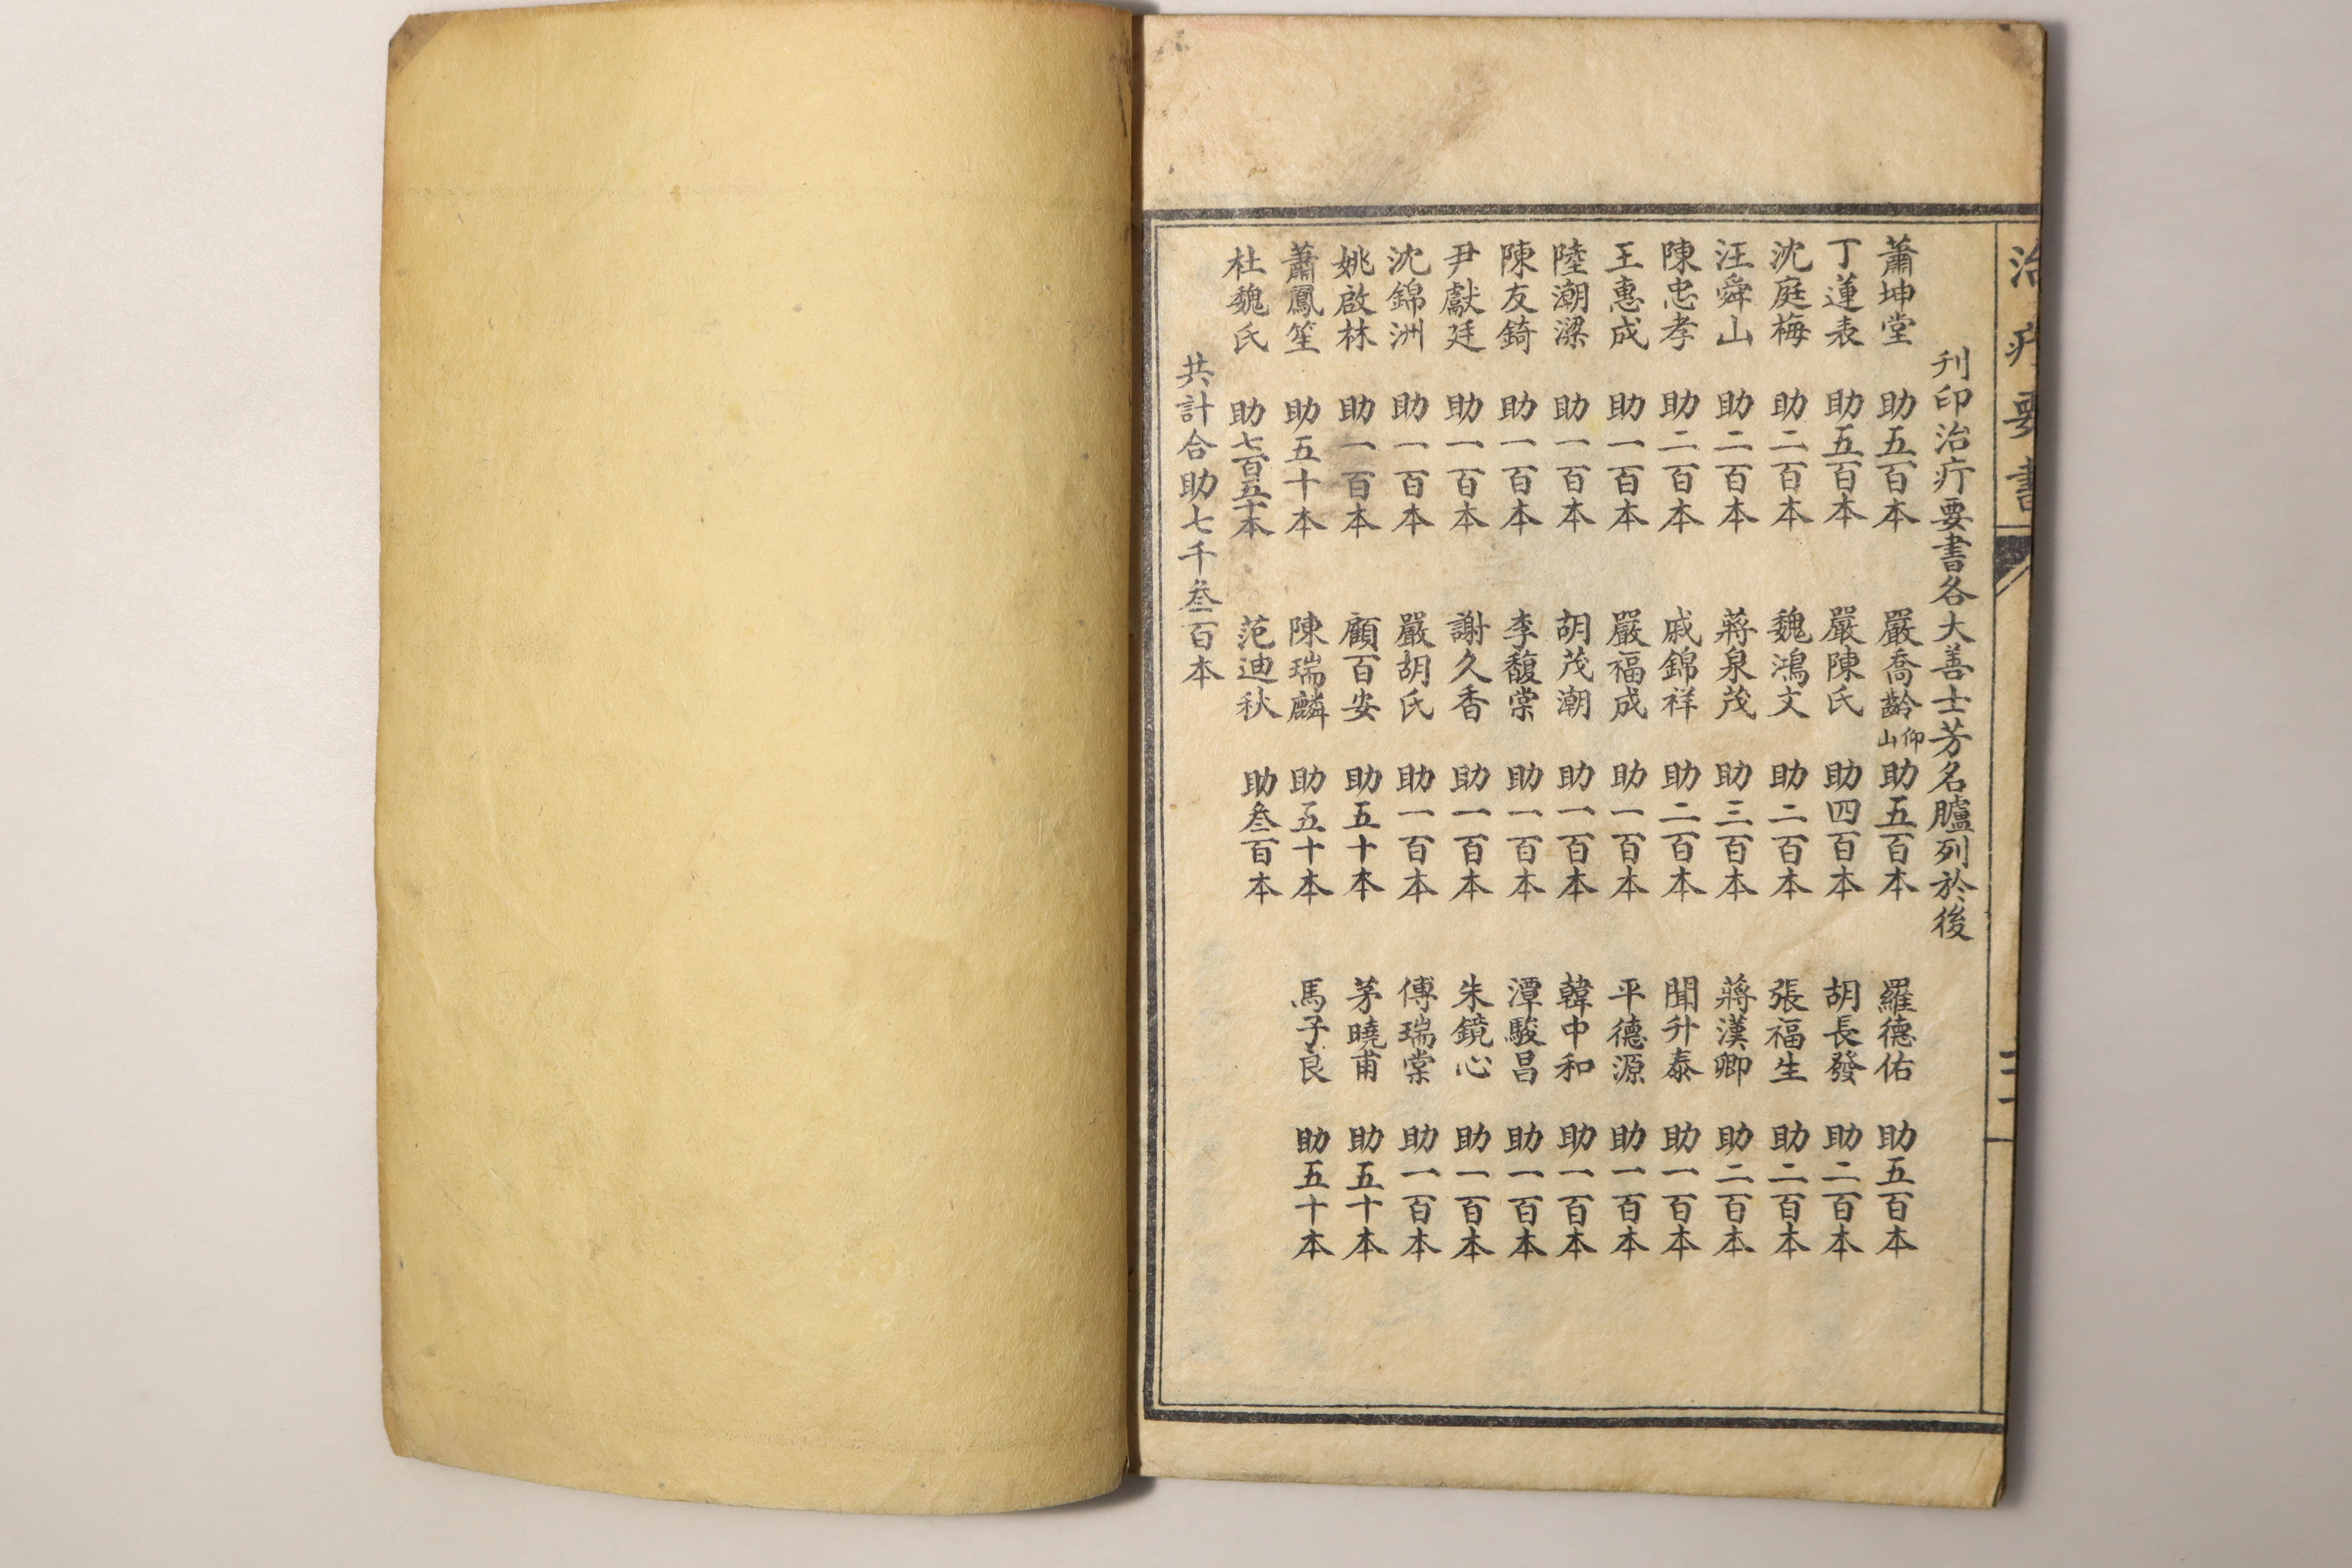 治疔要書
刊印治疔要書各大善士芳名臚列於後
蕭坤堂 助五百本 嚴喬齡仰山 助五百本 羅德佑 助五百本
丁蓮表 助五百本 嚴陳氏 助四百本 胡長發 助二百本
沈庭梅 助二百本 魏鴻文 助二百本 張福生 助二百本
汪舜山 助二百本 蔣泉茂 助三百本 蔣漢卿 助二百本
陳忠孝 助二百本 戚錦祥 助二百本 聞升泰 助一百本
王惠成 助一百本 嚴福成 助一百本 平德源 助一百本
陸潮梁 助一百本 胡茂潮 助一百本 韓中和 助一百本
陳友錡 助一百本 李馥棠 助一百本 潭駿昌 助一百本
尹獻廷 助一百本 謝久香 助一百本 朱鏡心 助一百本
沈錦洲 助一百本 嚴胡氏 助一百本 傅瑞棠 助一百本
姚啟林 助一百本 顧百安 助五十本 茅曉甫 助五十本
蕭鳳笙 助五十本 陳瑞麟 助五十本 馬子良 助五十本
杜魏氏 助七百五十本 范迪秋 助叁百本
共計合助七千叁百本